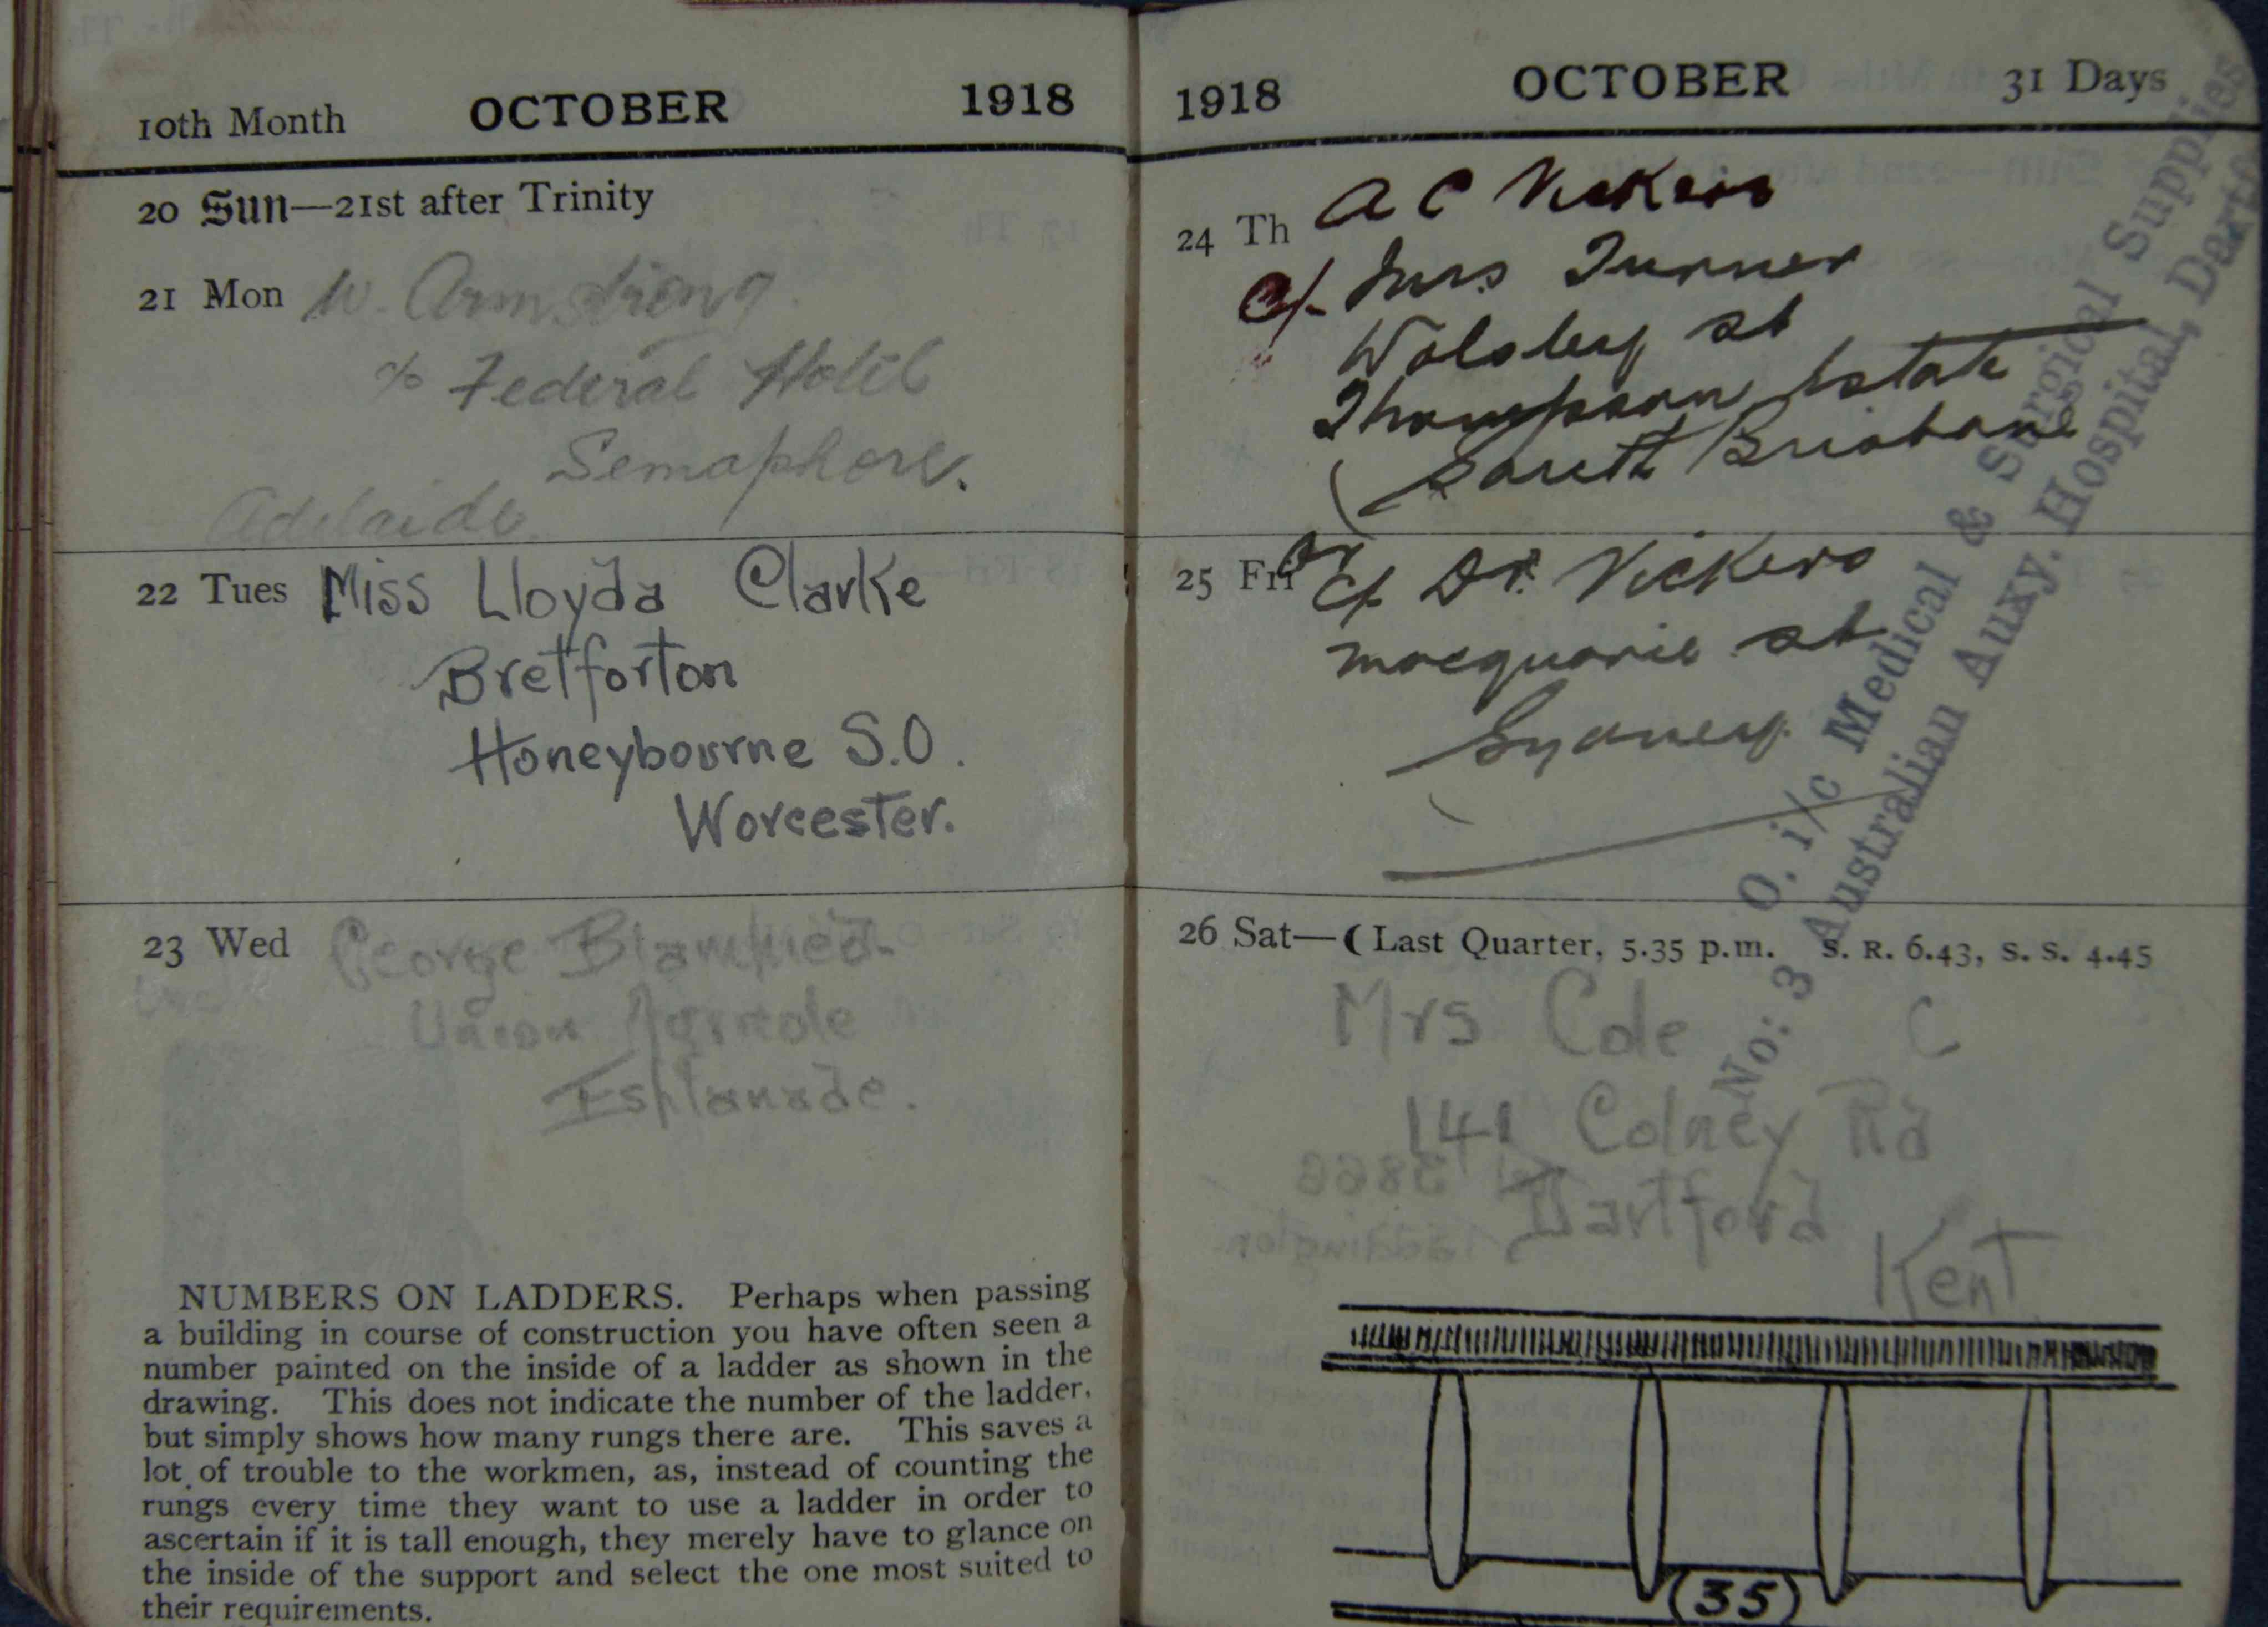 10th Month OCTOBER 1918
20 Sun—21st after Trinity
21 Mon W. Armstrong.
c/o Federal Hotel
Semaphore.
Adelaide.
22 Tues Miss Lloyda Clarke
Bretforton
Honeybourne S.O.
Worcester.
23 Wed George
Union Agricole
Esplanade.
NUMBERS ON LADDERS. Perhaps when passing
a building in course of construction you have often seen a
number painted on the inside of a ladder as shown in the
drawing. This does not indicate the number of the ladder,
but simply shows how many rungs there are. This saves a
lot of trouble to the workmen, as, instead of counting the
rungs every time they want to use a ladder in order to
ascertain if it is tall enough, they merely have to glance on
the inside of the support and select the one most suited to
their requirements.
1918 OCTOBER 31 Days
24 Th A C Vickers
C/- Mrs Turner
Wolsley st
Thompson Estate
South Brisbane
25 Fri or C/- Dr. Vickers
Macquarie st
Sydney.
26 Sat—( Last Quarter, 5.35 p.m. S. R. 6.43, S. S. 4.45
Mrs Cole C
141 Colney Rd
Dartford
Kent
(35)
O. i/c Medical & Surgical Supplies
No: 3 Australian Auxy. Hospital, Dartfo